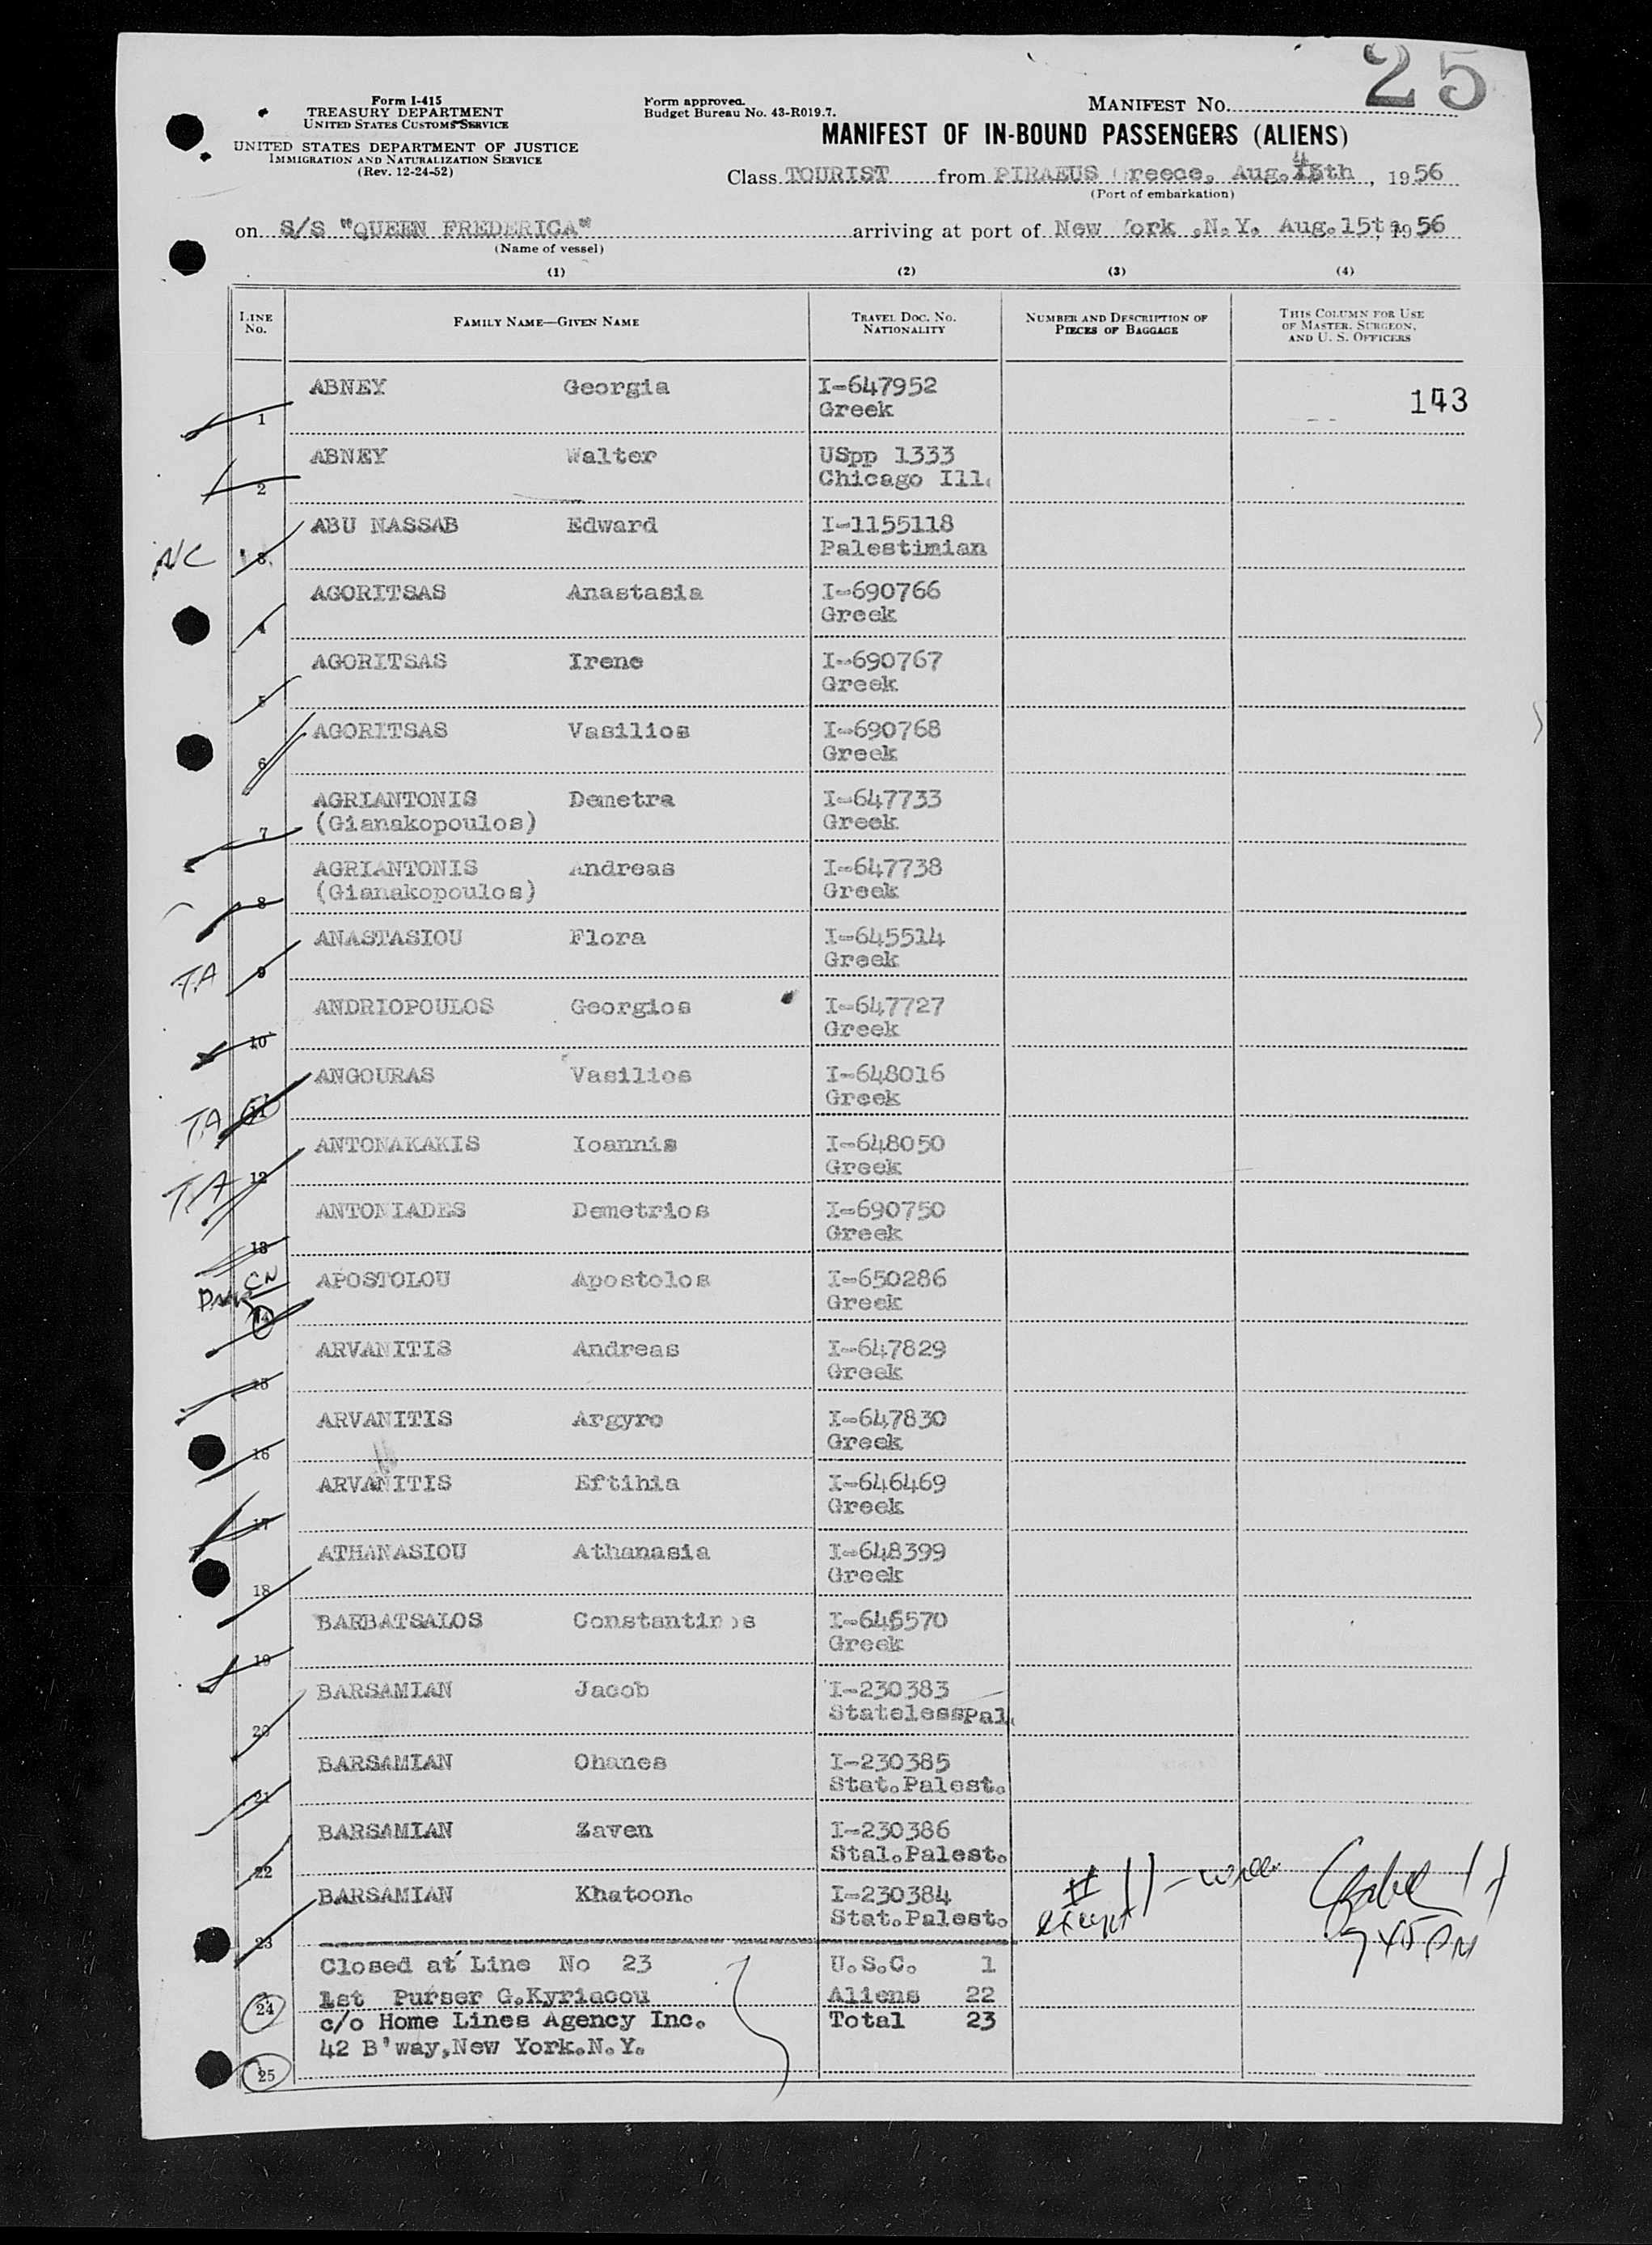 25
Form I-415
TREASURY DEPARTMENT
UNITED STATES CUSTOMS SERVICE
UNITED STATES DEPARTMENT OF JUSTICE
IMMIGRATION AND NATURALIZATION SERVICE
(Rev. 12-24-52)
Form approved.
Budget Bureau No. 43-R019.7.
MANIFEST NO.
MANIFEST OF IN-BOUND PASSENGERS (ALIENS)
Class TOURIST from PIRAEUS Greece, Aug. 4th, 1956
(Port of embarkation)
on S/S "QUEEN FREDERICA" arriving at port of New York ,N.Y. Aug.15th, 1956
(Name of vessel)
(1) (2) (3) (4)
LINE No. FAMILY NAME—GIVEN NAME TRAVEL DOC. NO. NATIONALITY NUMBER AND DESCRIPTION OF PIECES OF BAGGAGE THIS COLUMN FOR USE OF MASTER, SURGEON, AND U. S. OFFICERS
1 ABNEY Georgia I-647952 143
Greek
2 ABNEY Walter USpp 1333
Chicago Ill.
N/C 3 ABU NASSAB Edward I-1155118
Palestinian
4 AGORITSAS Anastasia I-690766
Greek
5 AGORITSAS Irene I-690767
Greek
6 AGORITSAS Vasilios I-690768
Greek
7 AGRIANTONIS Demetra I-647733
(Gianakopoulos) Greek
8 AGRIANTONIS Andreas I-647738
(Gianakopoulos) Greek
T.A 9 ANASTASIOU Flora I-645514
Greek
10 ANDRIOPOULOS Georgios I-647727
Greek
T.A 11 ANGOURAS Vasilios I-648016
Greek
T/A 12 ANTONAKAKIS Ioannis I-648050
Greek
13 ANTONIADES Demetrios I-690750
Greek
CN
14 APOSTOLOU Apostolos I-650286
Greek
15 ARVANITIS Andreas I-647829
Greek
16 ARVANITIS Argyro I-647830
Greek
17 ARVANITIS Eftihia I-646469
Greek
18 ATHANASIOU Athanasia I-648399
Greek
19 BARBATSALOS Constantinos I-646570
Greek
20 BARSAMIAN Jacob I-230383
StatelessPal.
21 BARSAMIAN Ohanes I-230385
Stat.Palest.
22 BARSAMIAN Zaven I-230386
Stal.Palest.
23 BARSAMIAN Khatoon. I-230384
Stat.Palest.
except # 11
745 PM
Closed at Line No 23 U.S.C. 1
24 1st Purser G.Kyriacou Aliens 22
c/o Home Lines Agency Inc. Total 23
42 B'way,New York.N.Y.
25